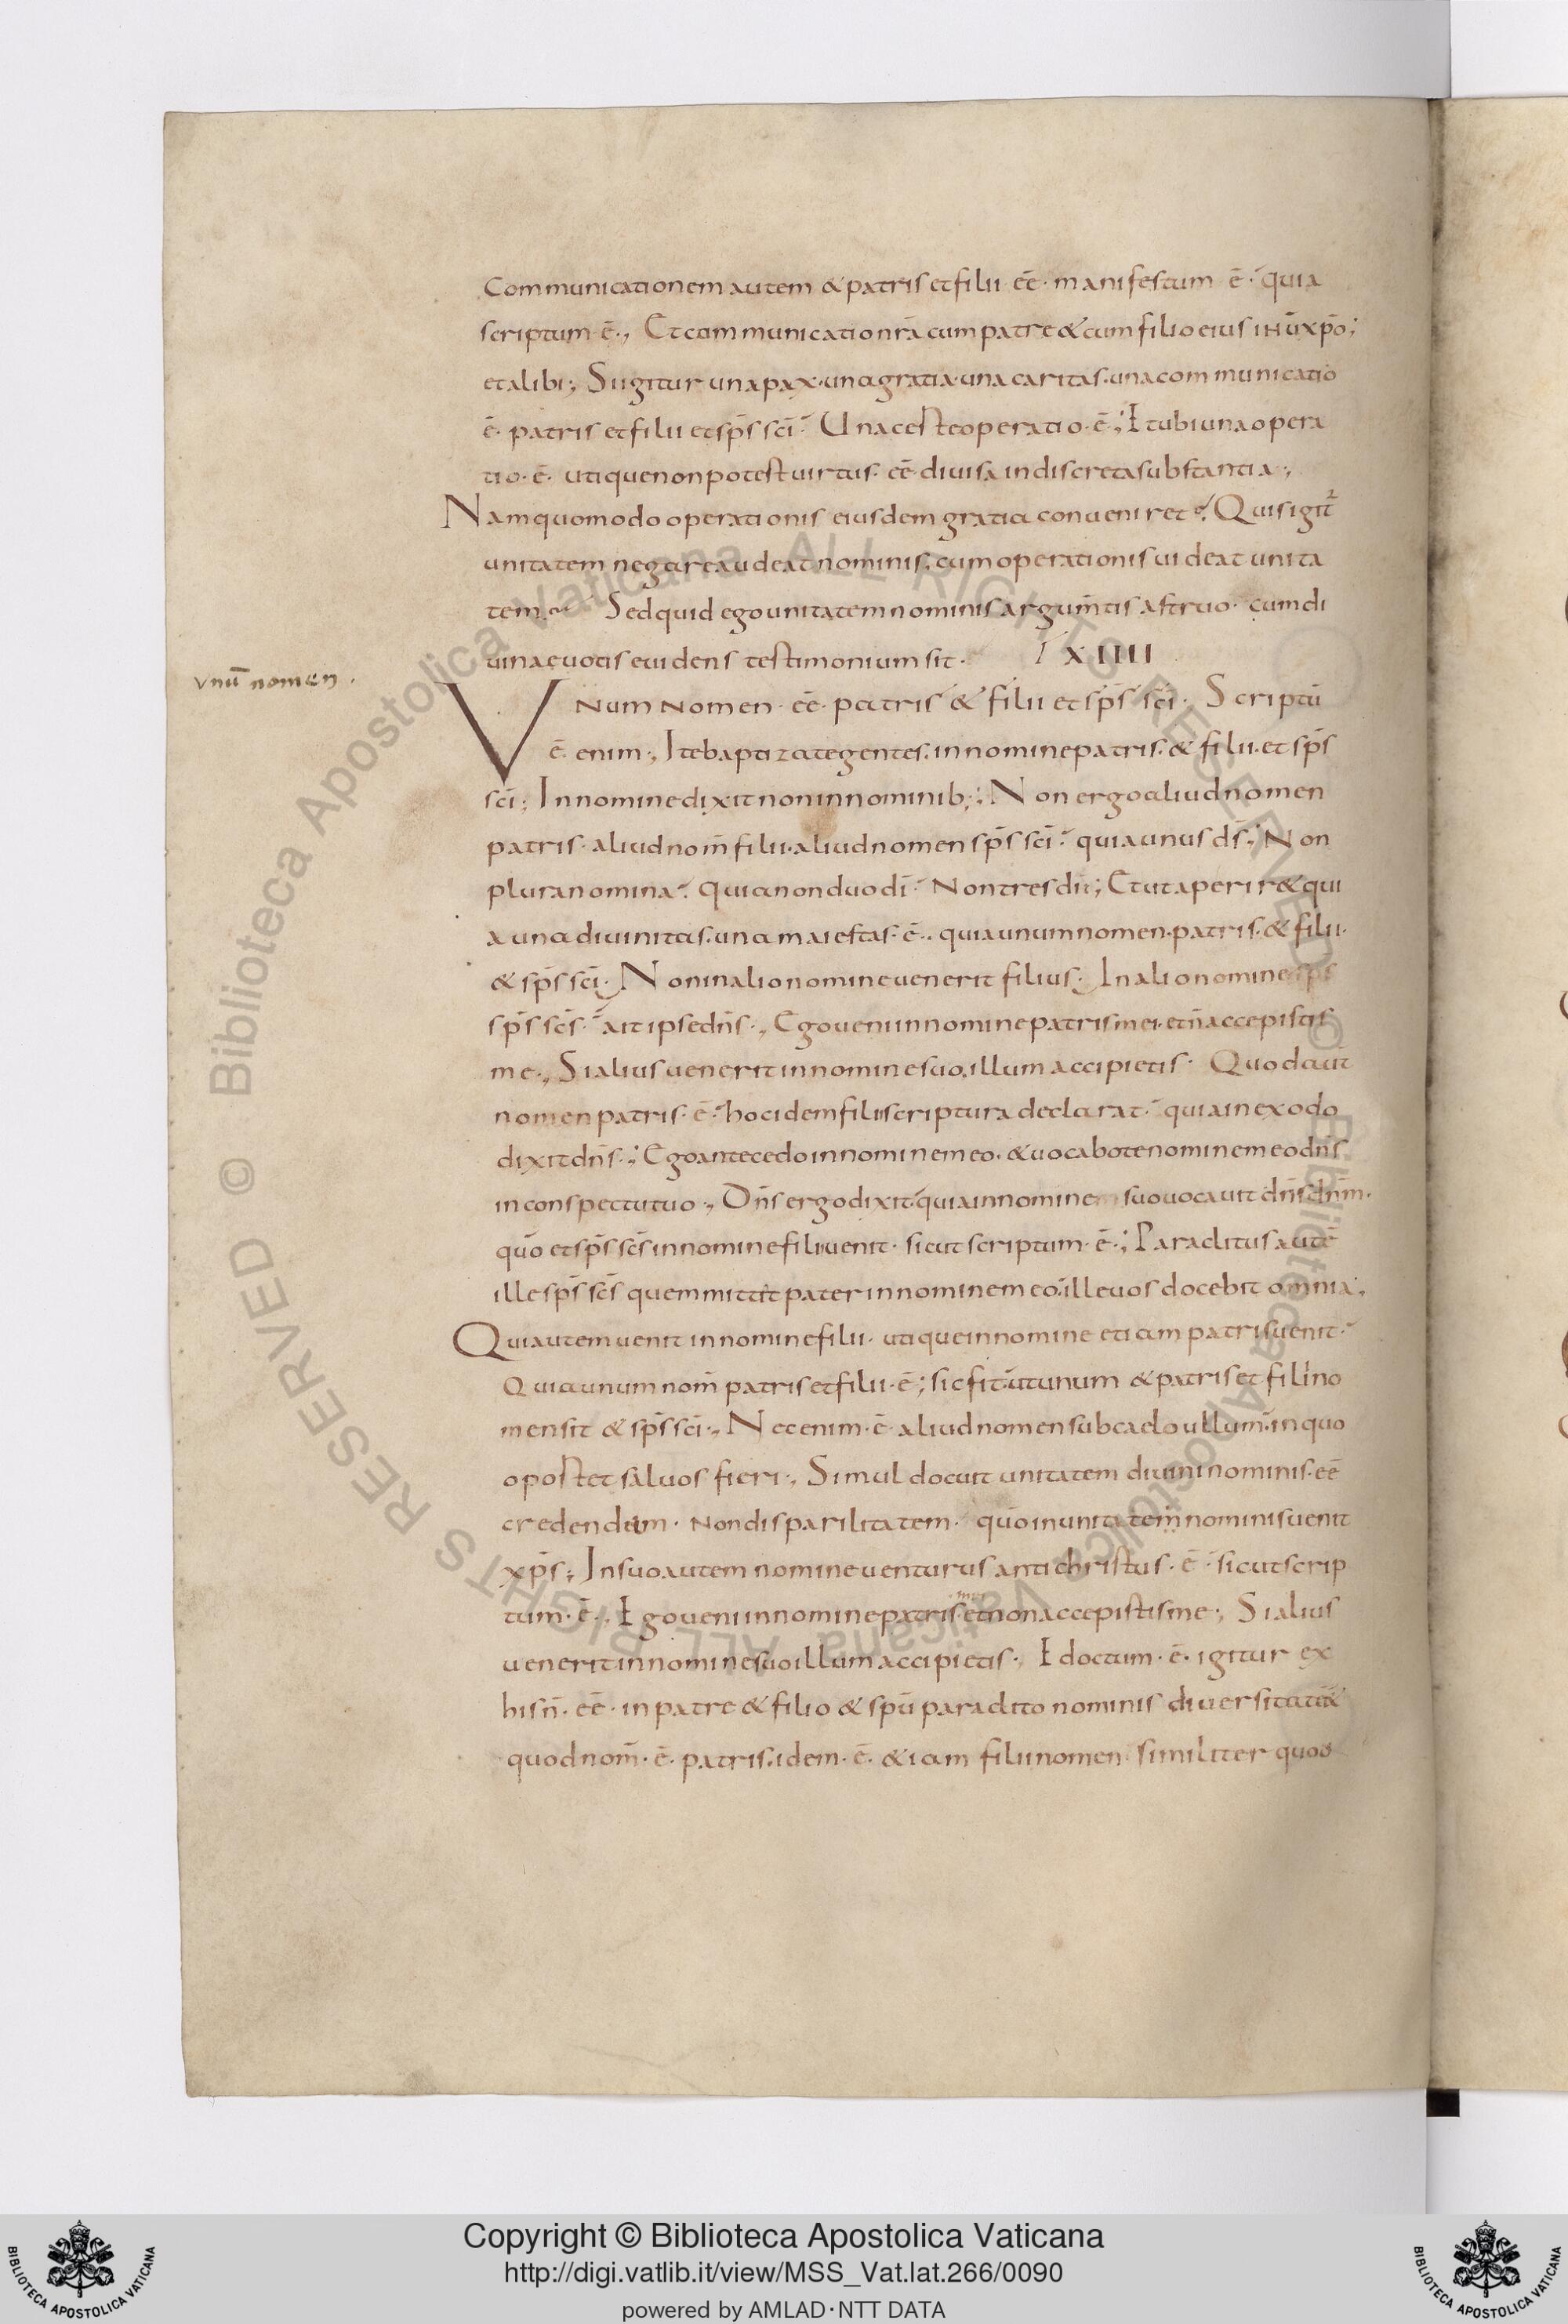 communicationem autem & patris et filii· eē· manifestum ē· quia
scriptum· ē·, Et communicatio nr̄a cum patre & cum filio eius ihū xp̄o;
et alibi; Si igitur una pax· una gratia· una caritas· una communicatio
ē· patris et filii et sp̄s sc̄i· Una certe operatio· ē·; Et ubi una opera
tio· ē· utique non potest uirtus· eē· diuisa indiscreta substantia·,
Nam quomodo operationis eiusdem gratia conueniret? Quis igit᷒
unitatem negare audeat nominis, cum operationis uideat unita
tem? Sed quid ego unitatem nominis argum̄tis astruo· cum di
uinae uocis euidens testimonium sit· XIIII
unū nomen.
VNum Nomen· eē· patris & filii et sp̄s sc̄i·, Scriptū
ē· enim·, Ite baptizate gentes· in nomine patris· & filii· et sp̄s
sc̄i; In nomine dixit non in nominib;; Non ergo aliud nomen
patris· aliud nom̄ filii· aliud nomen sp̄s sc̄i· quia unus ds̄·; Non
plura nomina· quia non duo dī· Non tres dii; Et ut aperir& qui
a una diuinitas· una maiestas· ē·. quia unum nomen· patris· & filii·
& sp̄s sc̄i· Non in alio nomine uenerit filius·, In alio nomine sp̄s
sp̄s sc̄s· ait ipse dn̄s·, Ego ueni in nomine patris mei· et n̄ accepistis
me·, Si alius uenerit in nomine suo, illum accipietis· Quod aut̄
nomen patris· ē· hoc idem filii scriptura declarat· quia in exodo
dixit dn̄s·; Ego antecedo in nomine meo· & uocabo te nomine meo dn̄s
in conspectu tuo·, Dn̄s ergo dixit quia in nomine suo uocauit dn̄s dn̄m·
quō et sp̄s sc̄s in nomine filii uenit· sicut scriptum· ē·; Paraclitus autē
ille sp̄s sc̄s quem mittit pater in nomine meo ille uos docebit omnia·,
Qui autem uenit in nomine filii· utique in nomine etiam patris uenit·
Quia unum nom̄ patris et filii· ē·; sic fit ut unum & patris et filii no
men sit & sp̄s sc̄i·, Nec enim· ē· aliud nomen sub caelo ullum· in quo
oportet saluos fieri·, Simul docuit unitatem diuini nominis· eē
credendam· non disparilitatem· quō in unitatem nominis uenit
xp̄s; In suo autem nomine uenturus antichristus· ē· sicut scrip
tum· ē·. Ego ueni in nomine patris mei et non accepistis me·, Si alius
uenerit in nomine suo illum accipietis·, Edoctum· ē· igitur ex
his n̄· eē· in patre & filio & spū paraclito nominis diuersitatē &
quod nom̄· ē· patris· idem· ē· &iam filii nomen similiter quod
Copyright © Biblioteca Apostolica Vaticana
http://digi.vatlib.it/view/MSS_Vat.lat.266/0090
powered by AMLAD·NTT DATA
BIBLIOTECA APOSTOLICA VATICANA
BIBLIOTECA APOSTOLICA VATICANA
© Biblioteca Apostolica Vaticana ALL RIGHTS RESERVED
© Biblioteca Apostolica Vaticana ALL RIGHTS RESERVED